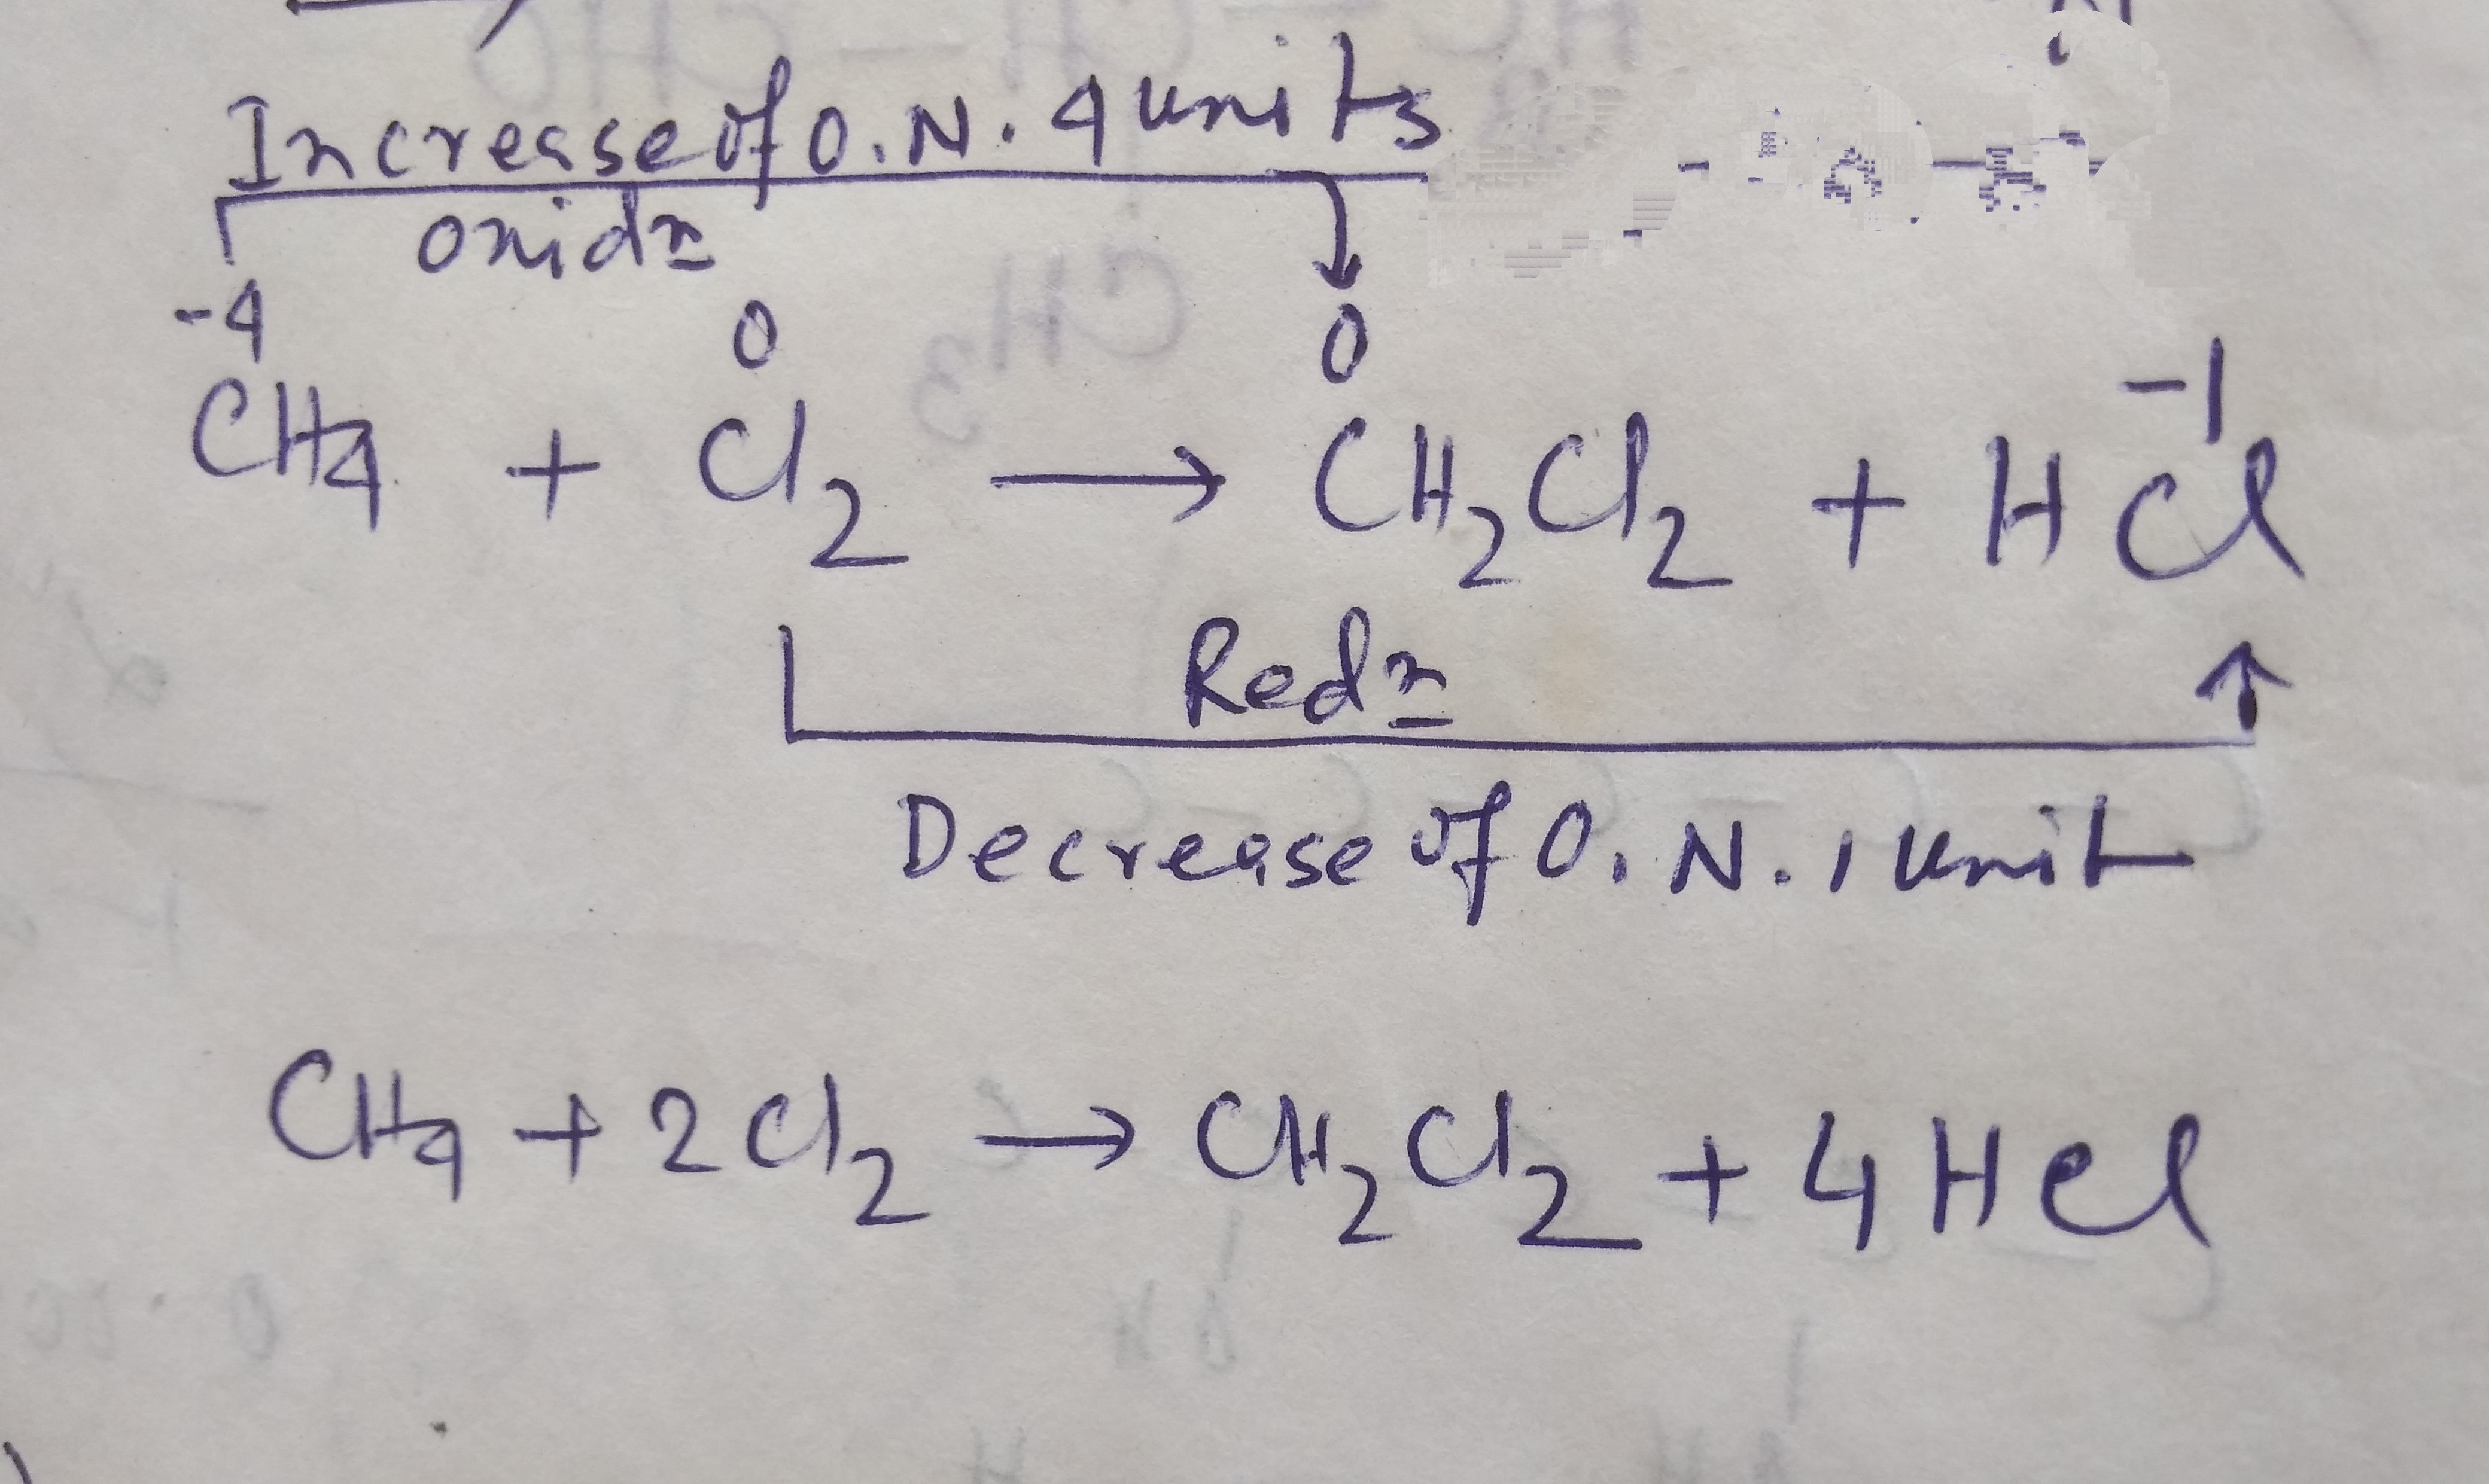 Increase of O.N. 4 units
oxidn
-4 0 0 -1
CH4 + Cl2 → CH2Cl2 + HCl
Redn
Decrease of O.N. 1 unit
CH4 + 2Cl2 → CH2Cl2 + 4HCl